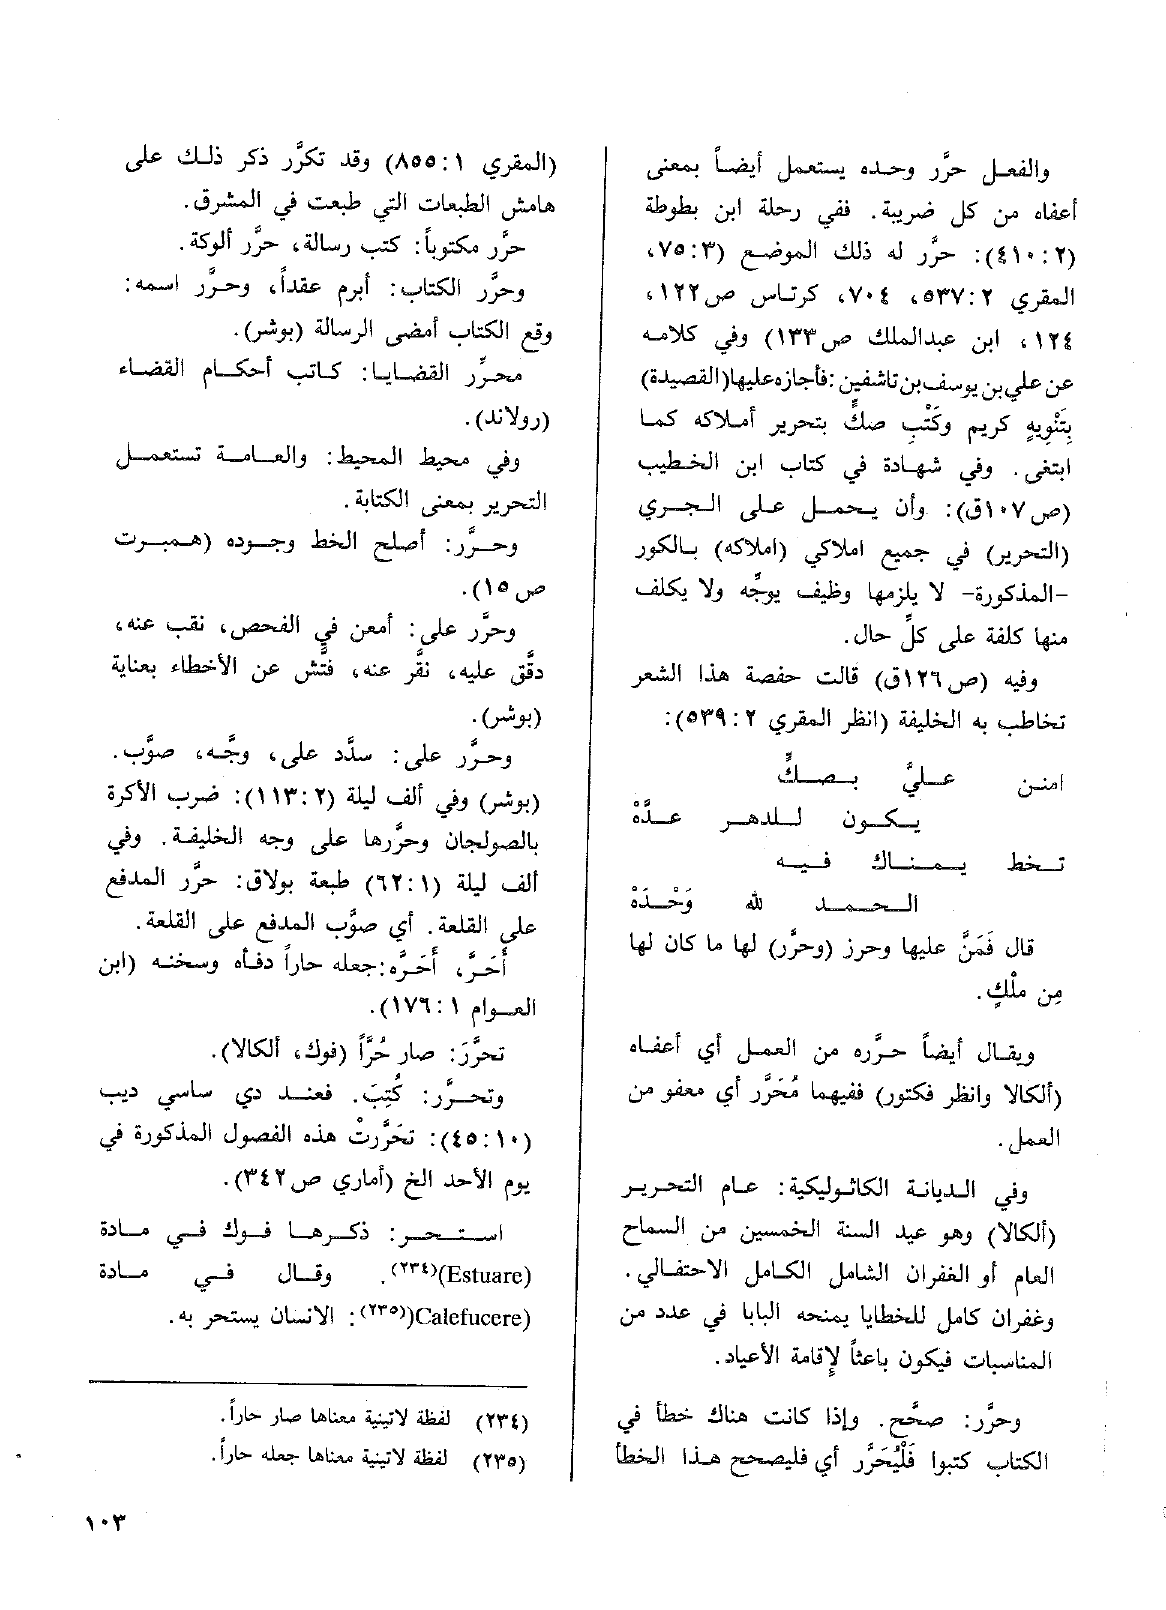 والفعـل حرَّر وحـده يستعمل أيضـاً بمعنى
أعفاه من كل ضريبة. ففي رحلة ابن بطوطة
(٢ : ٤١٠): حرَّر له ذلك الموضـع (٣ : ٧٥،
المقري ٢ : ٥٣٧، ٧٠٤، كرتـاس ص١٢٢،
١٢٤، ابن عبدالملك ص١٣٣) وفي كلامـه
عن علي بن يوسف بن تاشفين: فأجازه عليها (القصيدة)
بِتَنْوِيهٍ كريم وكَتْبِ صكٍّ بتحرير أمـلاكه كمـا
ابتغى. وفي شهـادة في كتاب ابن الخـطيب
(ص١٠٧ق): وأن يـحمـل علـى الـجـري
(التحرير) في جميع املاكي (املاكه) بـالكور
-المذكورة- لا يلزمها وظيف يوجَّه ولا يكلف
منها كلفة على كلِّ حال.
وفيه (ص١٢٦ق) قالت حفصة هذا الشعر
تخاطب به الخليفة (انظر المقري ٢ : ٥٣٩):
امنـن عـلـيَّ بـصـكٍّ
يـكـون لـلدهـر عـدَّهْ
تـخط يـمنـاك فـيـه
الـحـمـد لله وَحْـدَهْ
قال فَمَنَّ عليها وحرز (وحرَّر) لها ما كان لها
مِن ملْكٍ.
ويقـال أيضـاً حـرَّره من العمـل أي أعفـاه
(ألكالا وانظر فكتور) ففيهما مُحَرَّر أي معفو من
العمل.
وفي الـديانـة الكاثـوليكية: عـام التحريـر
(ألكالا) وهو عيد السنة الخمسين من السماح
العام أو الغفران الشامل الكامل الاحتفالي.
وغفران كامل للخطايا يمنحه البابا في عدد من
المناسبات فيكون باعثاً لإقامة الأعياد.
وحرَّر: صحَّح. وإذا كانت هناك خطأ في
الكتاب كتبوا فَلْيُحَرَّر أي فليصحح هـذا الخطأ
(المقري ١ : ٨٥٥) وقد تكرَّر ذكر ذلـك على
هامش الطبعات التي طبعت في المشرق.
حرَّر مكتوباً: كتب رسالة، حرَّر ألوكة.
وحرَّر الكتاب: أبرم عقداً، وحـرَّر اسمه:
وقع الكتاب أمضى الرسالة (بوشر).
محـرَّر القضـايـا: كـاتب أحكـام القضـاء
(رولاند).
وفي محيط المحيط: والعـامـة تستعمـل
التحرير بمعنى الكتابة.
وحـرَّر: أصلح الخط وجـوده (هـمبـرت
ص١٥).
وحرَّر على: أمعن في الفحص، نقب عنه،
دقَّق عليه، نقَّر عنه، فتَّش عن الأخطاء بعناية
(بوشر).
وحـرَّر على: سدَّد على، وجَّـه، صوَّب.
(بوشر) وفي ألف ليلة (٢ : ١١٣): ضرب الأكرة
بالصولجان وحرَّرها على وجه الخليفـة. وفي
ألف ليلة (١ : ٦٢) طبعة بولاق: حرَّر المدفع
على القلعة. أي صوَّب المدفع على القلعة.
أَحَرَّ، أَحَرَّه: جعله حاراً دفـأه وسخنـه (ابن
العـوام ١ : ١٧٦).
تحرَّرَ: صار حُرّاً (فوك، ألكالا).
وتحـرَّر: كُتِبَ. فعنـد دي ساسي ديب
(١٠ : ٤٥): تحَرَّرتْ هذه الفصول المذكورة في
يوم الأحد الخ (أماري ص٣٤٢).
استـحـر: ذكـرهـا فـوك فـي مـادة
(Estuare)(٢٣٤). وقـال فـي مـادة
(Calefucere)(٢٣٥): الانسان يستحر به.
(٢٣٤) لفظة لاتينية معناها صار حاراً.
(٢٣٥) لفظة لاتينية معناها جعله حاراً.
١٠٣